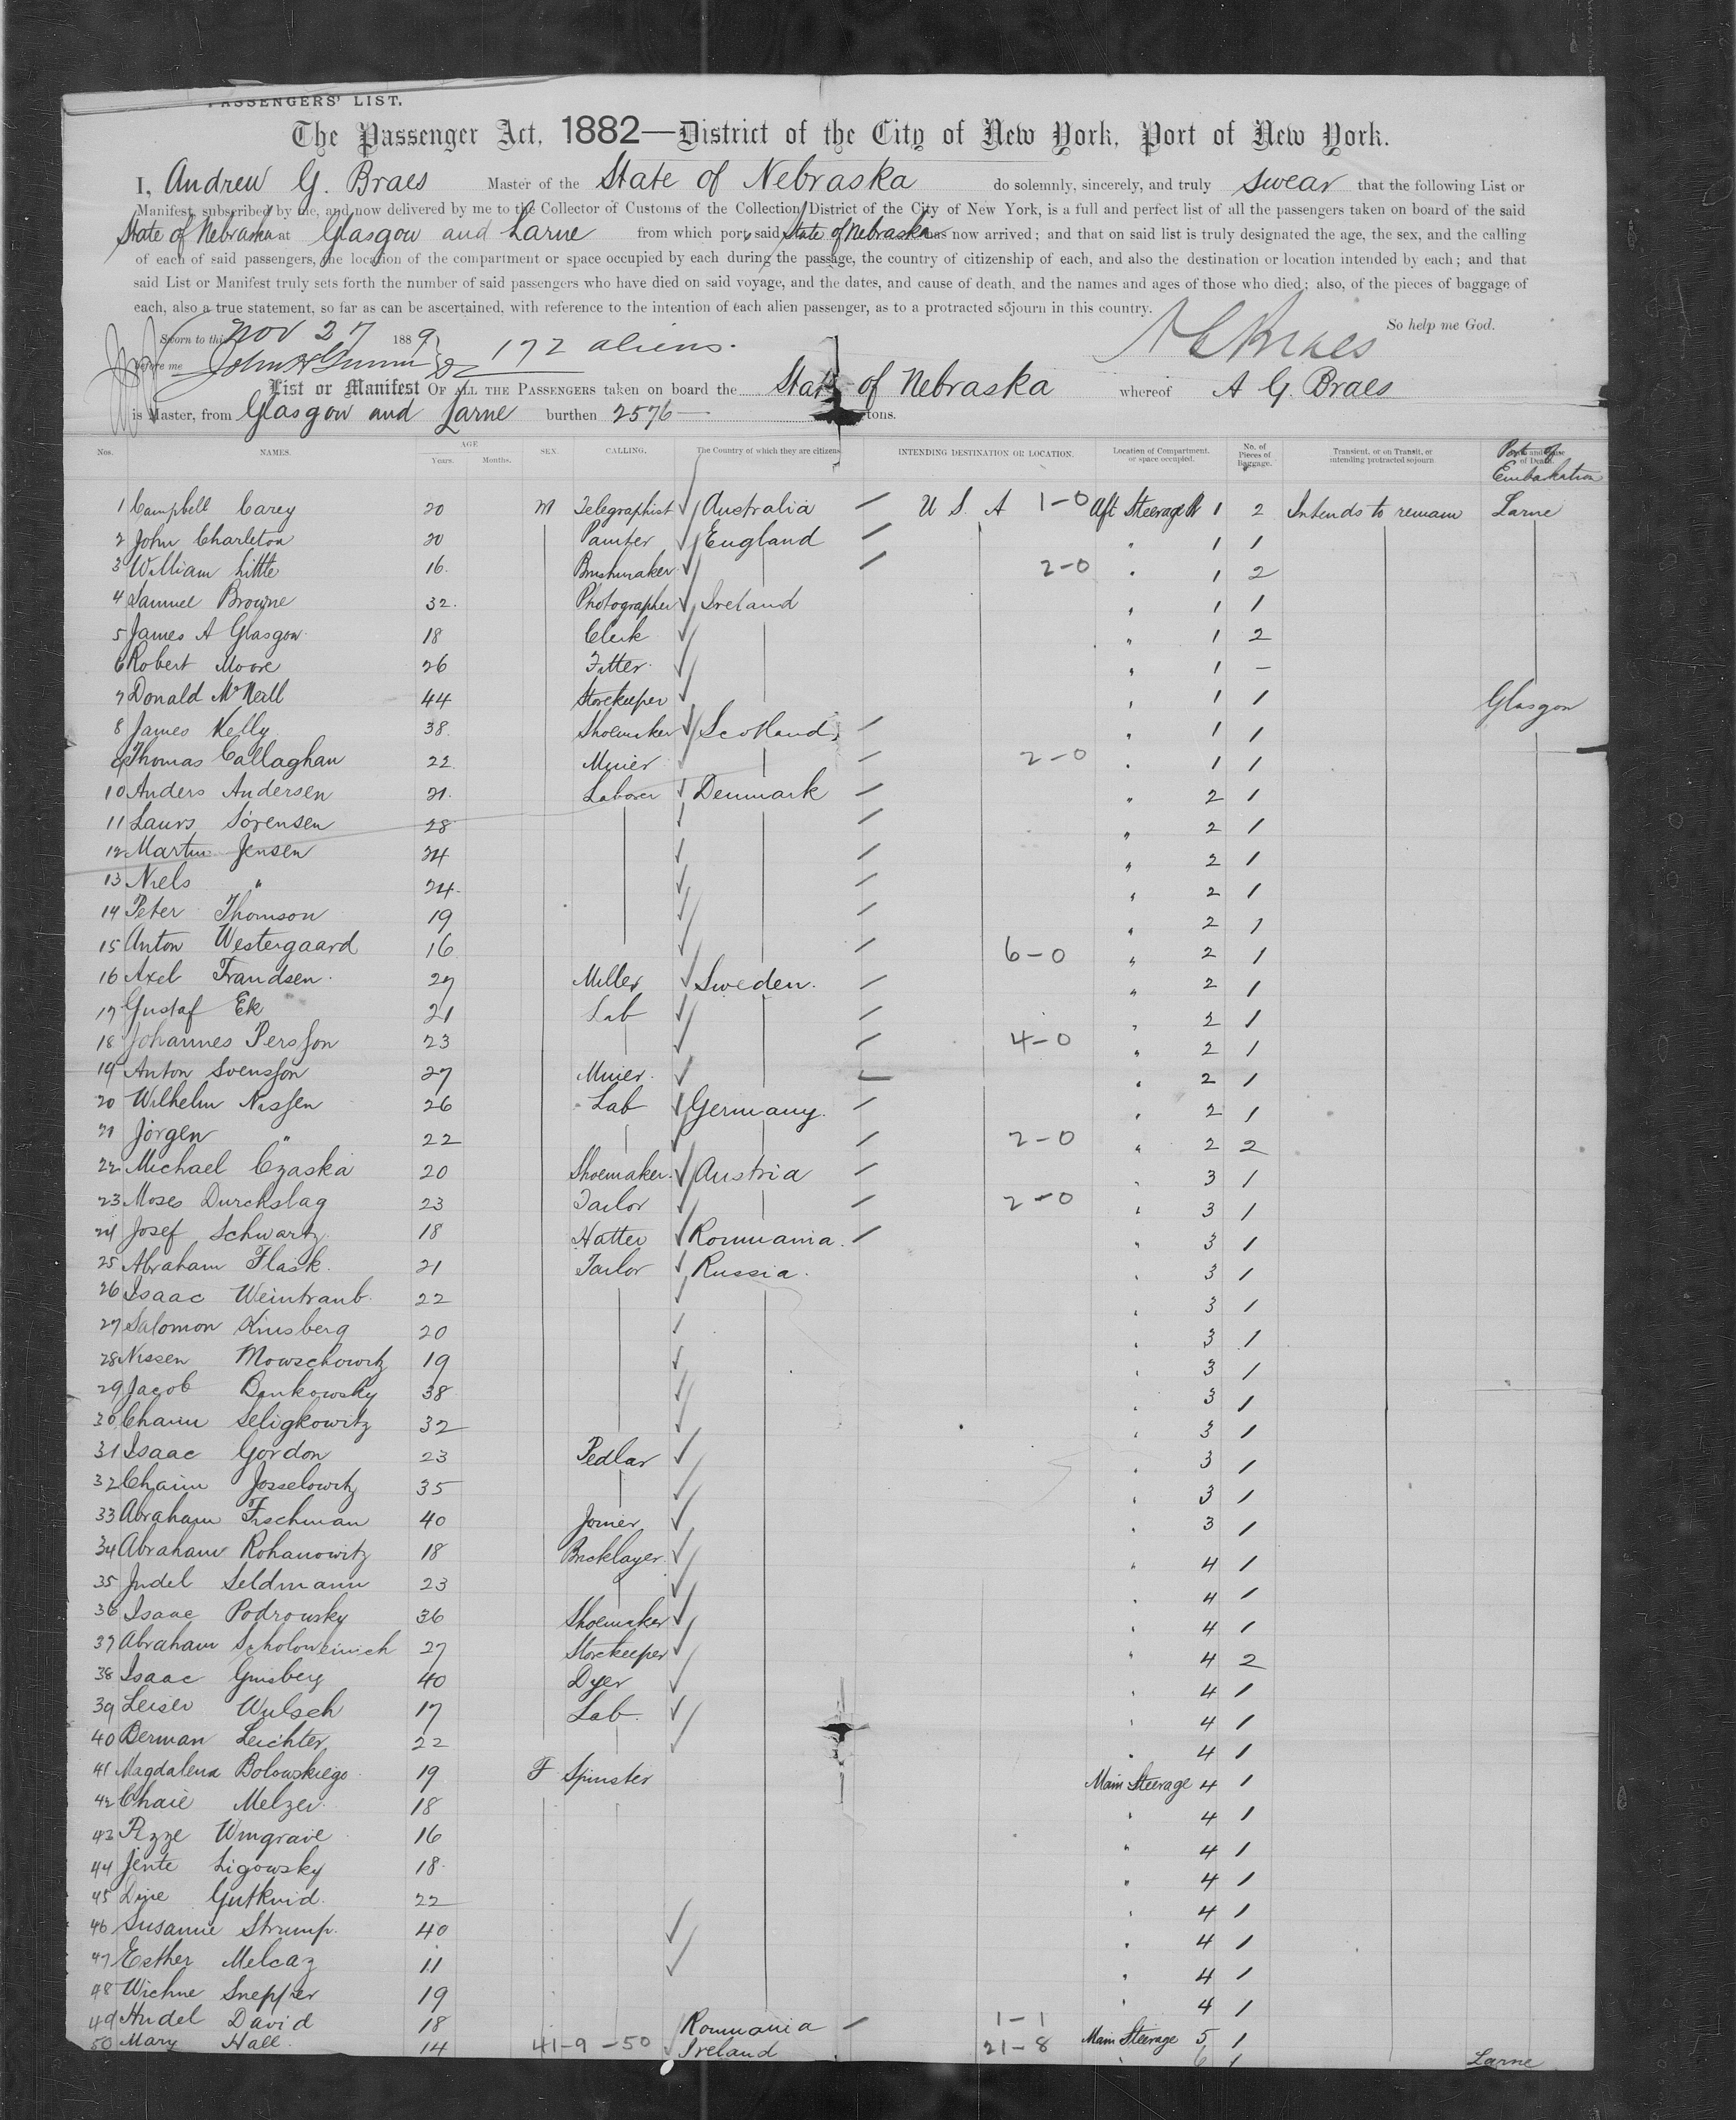 PASSENGERS' LIST.
The Passenger Act, 1882—District of the City of New York, Port of New York.
I, Andrew G. Braes Master of the State of Nebraska do solemnly, sincerely, and truly swear that the following List or
Manifest, subscribed by me, and now delivered by me to the Collector of Customs of the Collection District of the City of New York, is a full and perfect list of all the passengers taken on board of the said
State of Nebraska at Glasgow and Larne from which port, said State of Nebraska has now arrived; and that on said list is truly designated the age, the sex, and the calling
of each of said passengers, the location of the compartment or space occupied by each during the passage, the country of citizenship of each, and also the destination or location intended by each; and that
said List or Manifest truly sets forth the number of said passengers who have died on said voyage, and the dates, and cause of death, and the names and ages of those who died; also, of the pieces of baggage of
each, also a true statement, so far as can be ascertained, with reference to the intention of each alien passenger, as to a protracted sojourn in this country.
So help me God.
Sworn to this Nov 27 1889 172 aliens. A G Braes
before me
List or Manifest OF ALL THE PASSENGERS taken on board the State of Nebraska whereof A G. Braes
is Master, from Glasgow and Larne burthen 2576 — tons.
Nos. NAMES. AGE Years. Months. SEX. CALLING. The Country of which they are citizens INTENDING DESTINATION OR LOCATION. Location of Compartment. or space occupied. No. of Pieces of Baggage. Transient, or on Transit, or intending protracted sojourn Port of Embarkation
1 Campbell Carey 20 M Telegraphist Australia U S. A 1-0 Aft Steerage 1 2 Intends to remain Larne
2 John Charleton 20 Painter England " 1 1
3 William Little 16 Brushmaker 2-0 " 1 2
4 Samuel Browne 32 Photographer Ireland " 1 1
5 James A Glasgow 18 Clerk " 1 2
6 Robert Moore 26 Fitter " 1 –
7 Donald McNeill 44 Storekeeper " 1 1 Glasgow
8 James Kelly 38 Shoemaker Scotland " 1 1
9 Thomas Callaghan 22 Miner 2-0 " 1 1
10 Anders Andersen 21 Laborer Denmark " 2 1
11 Laurs Sørensen 28 " 2 1
12 Martin Jensen 24 " 2 1
13 Niels " 24 " 2 1
14 Peter Thomson 19 " 2 1
15 Anton Westergaard 16 6-0 " 2 1
16 Axel Frandsen 27 Miller Sweden " 2 1
17 Gustaf Ek 21 Lab " 2 1
18 Johannes Persson 23 4-0 " 2 1
19 Anton Svensson 27 Miner " 2 1
20 Wilhelm Nissen 26 Lab Germany " 2 1
21 Jörgen " 22 2-0 " 2 2
22 Michael Czaska 20 Shoemaker Austria " 3 1
23 Moses Durchslag 23 Tailor 2-0 " 3 1
24 Josef Schwartz 18 Hatter Roumania " 3 1
25 Abraham Flask 21 Tailor Russia " 3 1
26 Isaac Weintraub 22 " 3 1
27 Salomon Kinsberg 20 " 3 1
28 Nissen Mowschowitz 19 " 3 1
29 Jacob 38 " 3 1
30 Chaim Seligkowitz 32 " 3 1
31 Isaac Gordon 23 Pedlar " 3 1
32 Chaim Josselowitz 35 " 3 1
33 Abraham Fischman 40 Joiner " 3 1
34 Abraham Rohanowitz 18 Bricklayer " 4 1
35 Judel Seldmann 23 " 4 1
36 Isaac Podrowsky 36 Shoemaker " 4 1
37 Abraham 27 Storekeeper " 4 2
38 Isaac Ginsberg 40 Dyer " 4 1
39 Leiser Wulsch 17 Lab " 4 1
40 Berman Leichter 22 " 4 1
41 Magdalena Bolowskiego 19 F Spinster Main Steerage 4 1
42 Chaie Melzer 18 " 4 1
43 Pezze Wingrave 16 " 4 1
44 Jente Ligowsky 18 " 4 1
45 Gutkind 22 " 4 1
46 Susanne Strump 40 " 4 1
47 Esther Melcaz 11 " 4 1
48 Wichne Snepper 19 " 4 1
49 Hudel David 18 Roumania 1-1 Main Steerage 5 1
50 Mary Hall 14 41-9-50 Ireland 21-8 " 6 1 Larne